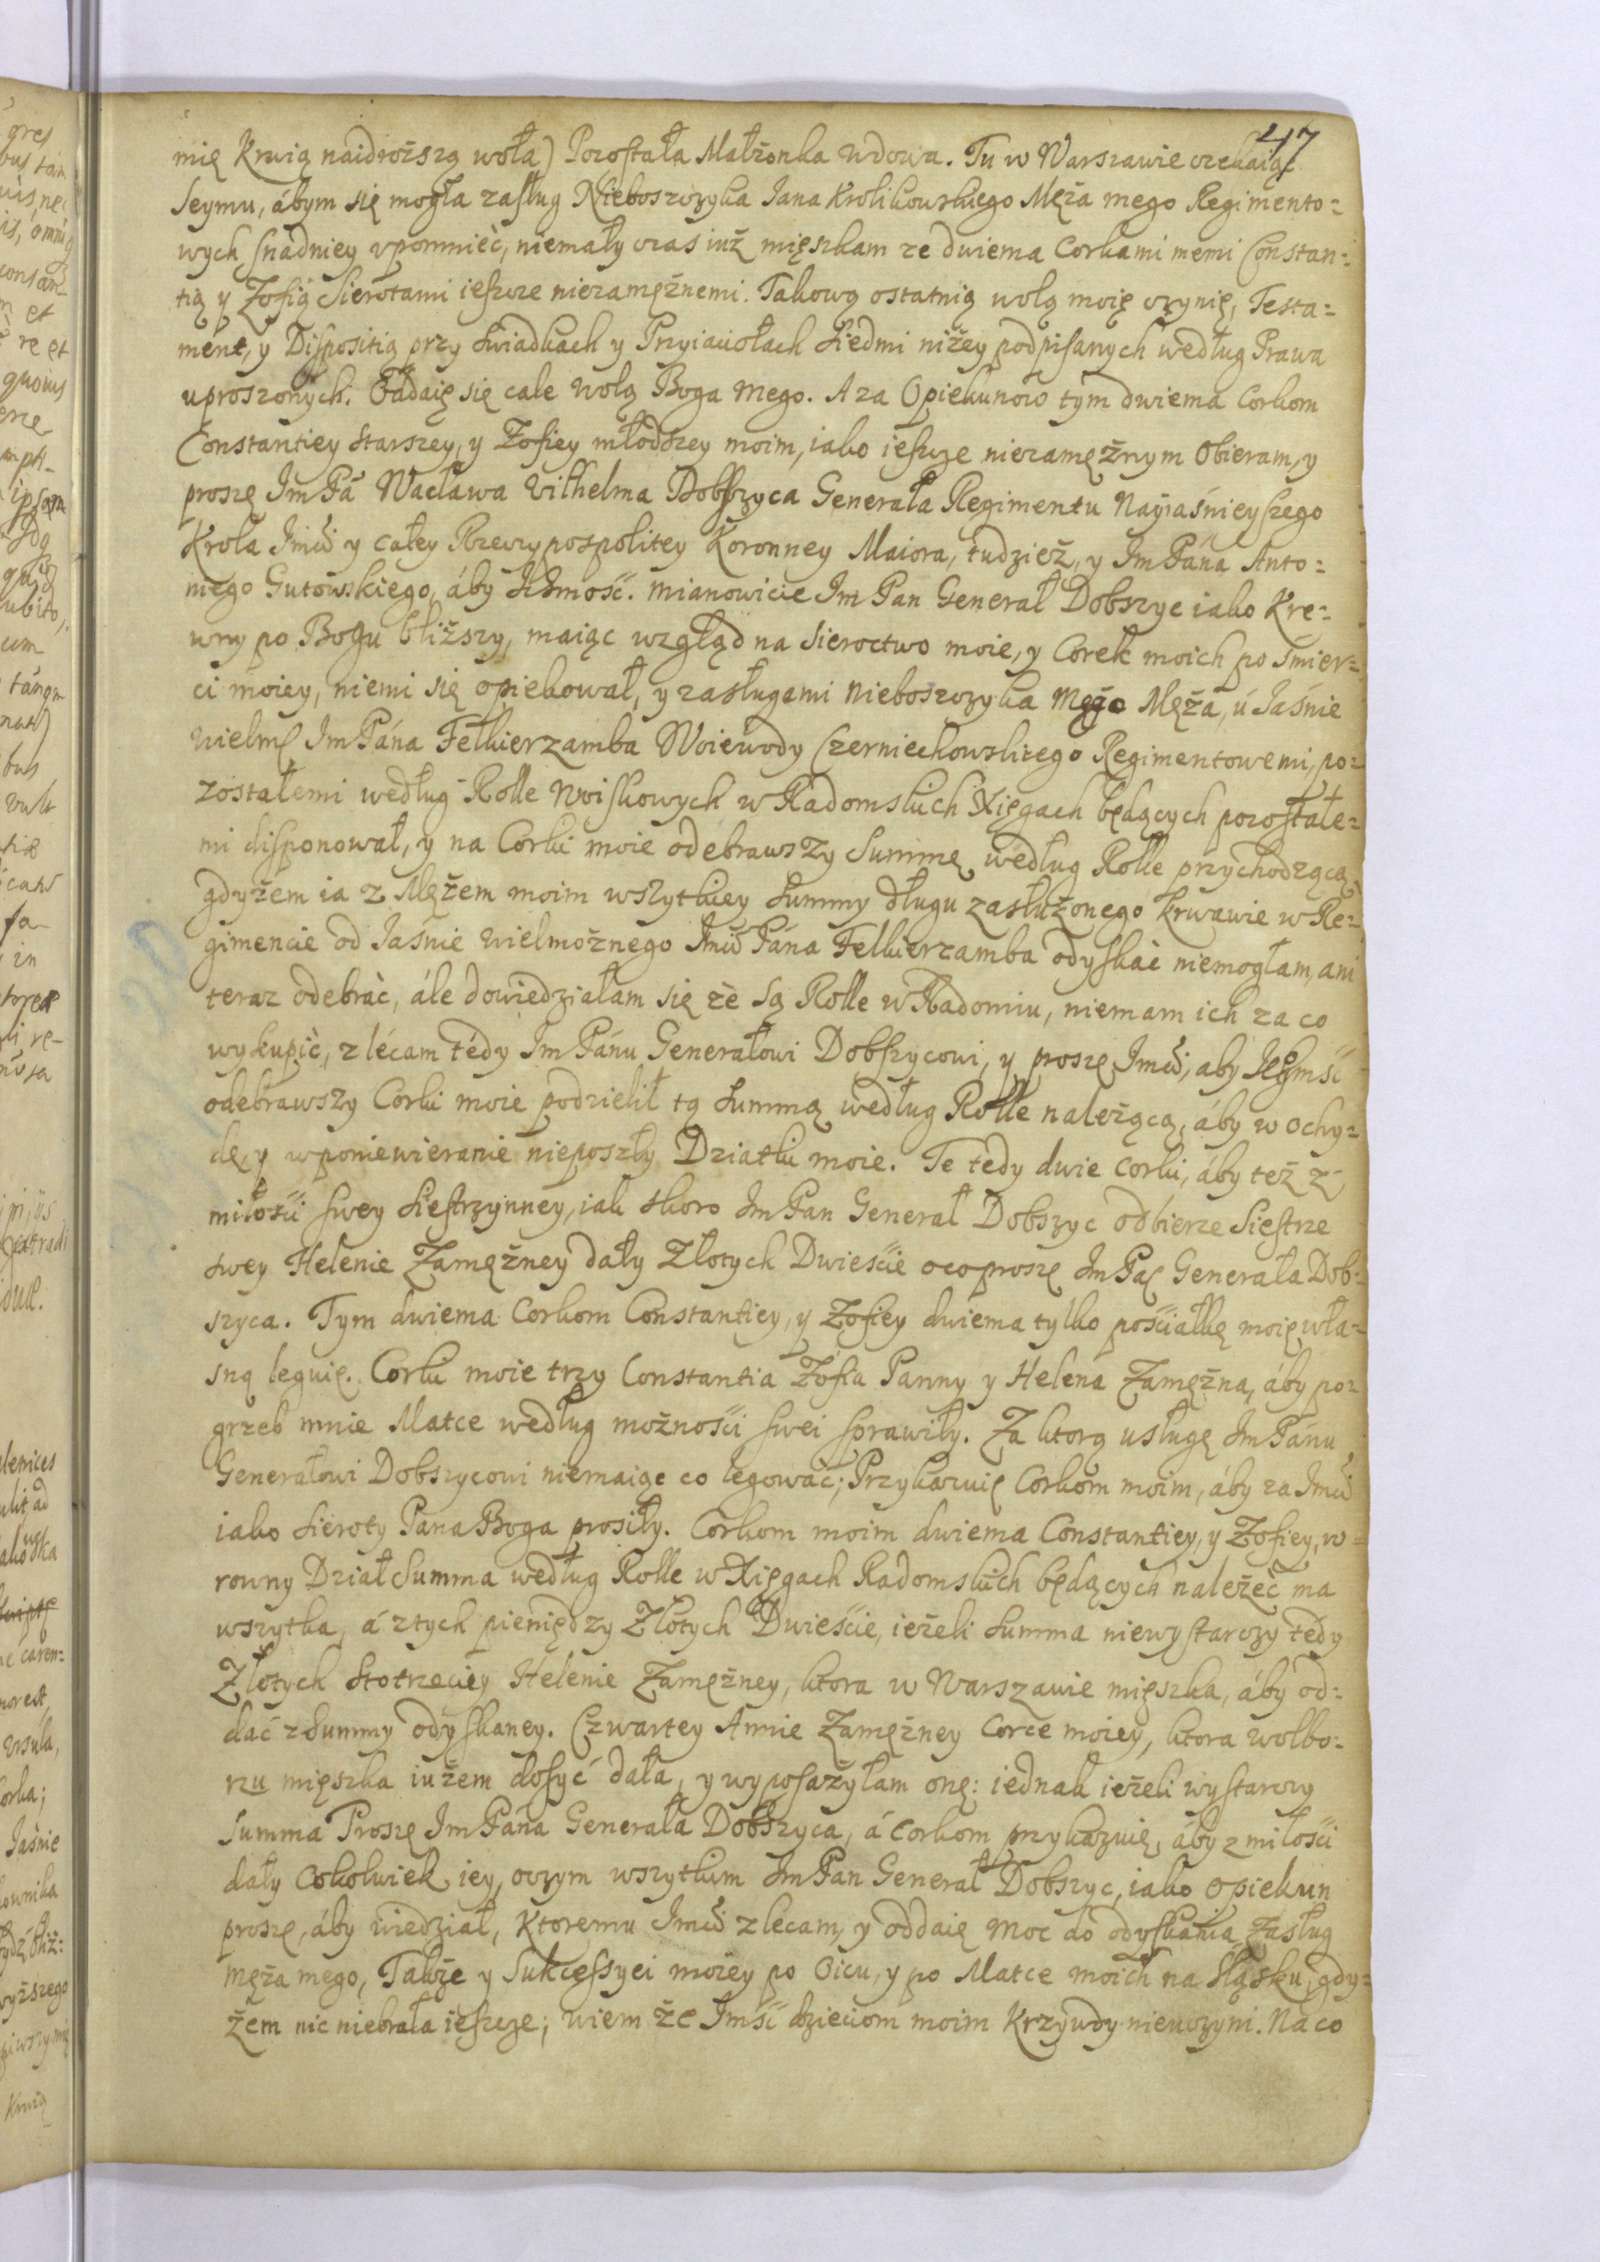 47
mię Krwią naidroższą woła) Pozostała Małżonka wdowa. Tu w Warszawie czekaiąc
Seymu, ábym się mogła zasług Nieboszczyka Jana Krolikowskiego Męża mego Regimento=
wych snadniey vpomnieć, niemały czas iuż mięszkam ze dwiema Corkami memi Constan=
tią y Zofią Sierotami ieszcze niezamężnemi. Takową ostatnią wolą moię czynię, Testa=
ment, y Dispositią przy świadkach y Przyiaciołach siedmi niżey podpisanych według Prawa
uproszonych. Oddaię się całe wolą Boga mego. A za Opiekunow tym dwiema Corkom
Constantiey starszey, y Zofiey młodszey moim, iako ieszcze niezamężnym Obieram, y
proszę Im Pá Wacława Vilhelma Dobszyca Generała Regimentu Nayiaśnieyszego
Krola Jmći y całey Rzeczypospolitey Koronney Maiora, tudzież, y Im Pána Anto=
niego Gutowskiego, áby Ichmość. mianowicie Im Pan Generał Dobszyc iako Kre=
wny po Bogu bliższy, maiąc wzgląd na Sieroctwo moie, y Corek moich po śmier=
ci moiey, niemi się opiekował, y zasługami Nieboszczyka Mego Męża, ú Jaśnie
Wielmo Im Pána Felkierzamba Woiewody Czerniechowskiego Regimentowemi, po=
zostałemi według Rolle Woiskowych w Radomskich Xięgach będących pozostałe=
mi disponował, y na Corki moie odebrawszy Summę według Rolle przychodzącą,
gdyżem ia z Mężem moim wszytkiey Summy długu zasłużonego krwawie w Re=
gimencie od Jaśnie Wielmożnego Jmći Pána Felkierzamba odyskać niemogłam, ani
teraz odebrać, ále dowiedziałam się że są Rolle w Radomiu, niemam ich za co
wykupić, zlécam tédy Im Pánu Generałowi Dobszycowi, y proszę Jmći, aby Jegmść
odebrawszy Corki moie podzielił tą Summą według Rolle należącą, áby w ochy=
dę, y w poniewieranie nieposzły Dziatki moie. Te tedy dwie Corki, áby też z
miłości swey siestrzynney, iak skoro Im Pan Generał Dobszyc odbierze Siestrze
swey Helenie Zamężney dały Złotych Dwieście oco proszę Im Pa Generała Dob=
szyca. Tym dwiema Corkom Constantiey, y Zofiey dwiema tylko pościałkę moię wła=
sną leguię. Corki moie trzy Constantia Zofia Panny y Helena Zamężna, áby po=
grzeb mnie Matce według możności swei sprawiły. Za ktorą usługę Im Pánu
Generałowi Dobszycowi niemaiąc co legować; Przykazuię Corkom moim, áby za Jmći
iako sieroty Pana Boga prosiły. Corkom moim dwiema Constantiey, y Zofiey, w
rowny Dział Summa według Rolle w Xięgach Radomskich będących należeć ma
wszytka, á z tych pieniędzy Złotych Dwieście, ieżeli Summa niewystarczy tedy
Złotych Sto trzeciey Helenie Zamężney, ktora w Warszawie mięszka, áby od=
dać z Summy odyskaney. Czwartey Annie Zamężney Corce moiey, ktora wolbo=
rzu mięszka iużem dosyć dała, y wyposażyłam onę: iednak ieżeli wystarczy
Summa Proszę Im Pána Generała Dobszyca, á Corkom przykazuię, áby z miłości
dały cokolwiek iey, oczym wszytkim Im Pan Generał Dobszyc, iako Opiekun
proszę, áby wiedział, Ktoremu Jmći zlecam, y oddaię moc do odyskania zasług
męża mego, Także y Sukcessyei moiey po Oicu, y po Matce moich na Śląsku, gdy=
żem nic niebrała ieszcze; wiem że Jmść dzieciom moim Krzywdy nieuczyni. Na co